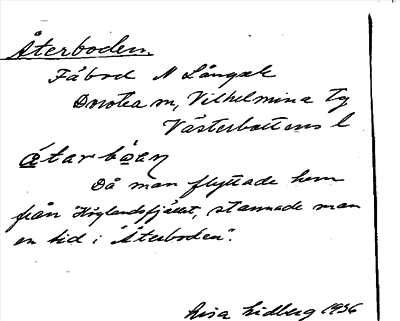 Återboden.
Fäbod N Långsele
Dorotea sn, Vilhelmina tg
Västerbottens l
åtarbɷan
Då man flyttade hem
från "Höglandsfjället, stannade man
en tid i "Återboden".
Lisa Lidberg 1936